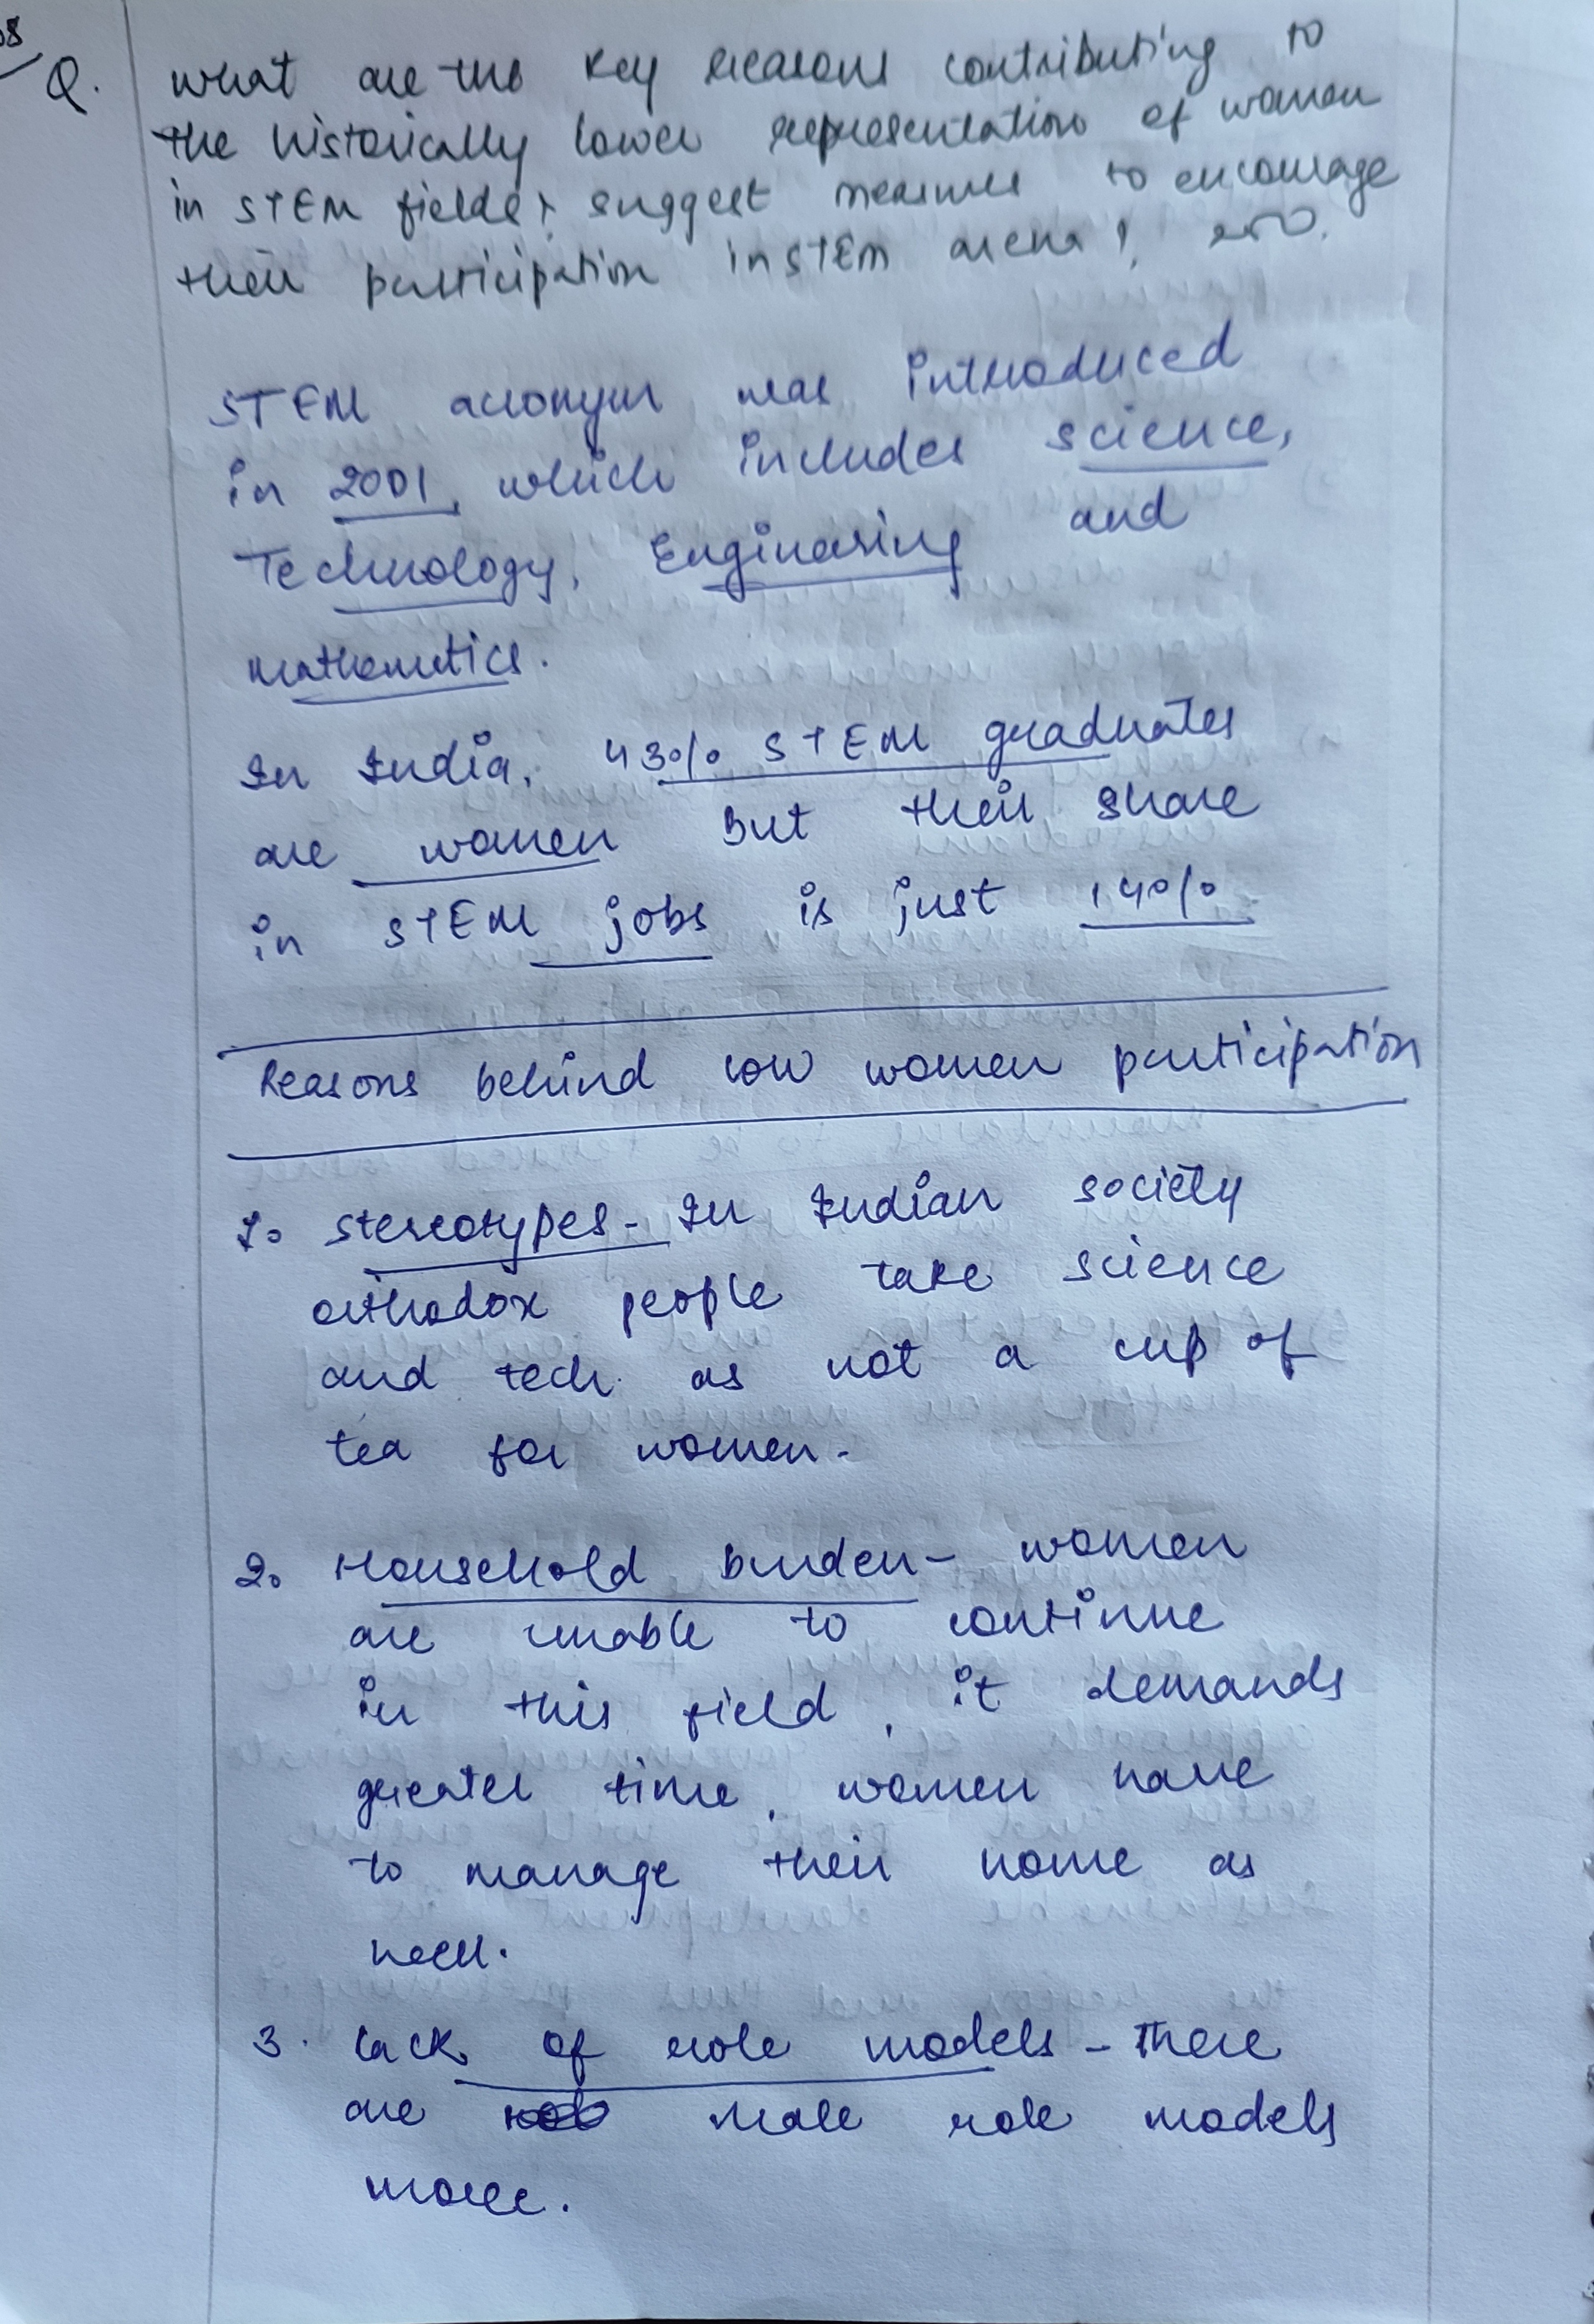 08
Q. What are the key reasons contributing to
the historically lower representation of women
in STEM fields? suggest measures to encourage
their participation in STEM arena? 250.
STEM acronym was introduced
in 2001, which includes science,
Technology, Enginearing and
mathematics.
In India, 43% STEM graduates
are women but their share
in STEM jobs is just 14%
Reasons behind low women participation
1. Stereotypes - In Indian society
orthodox people take science
and tech. as not a cup of
tea for women.
2. Household burden - women
are unable to continue
in this field, it demands
greater time, women have
to manage their home as
well.
3. lack of role models - There
are male role models
more.